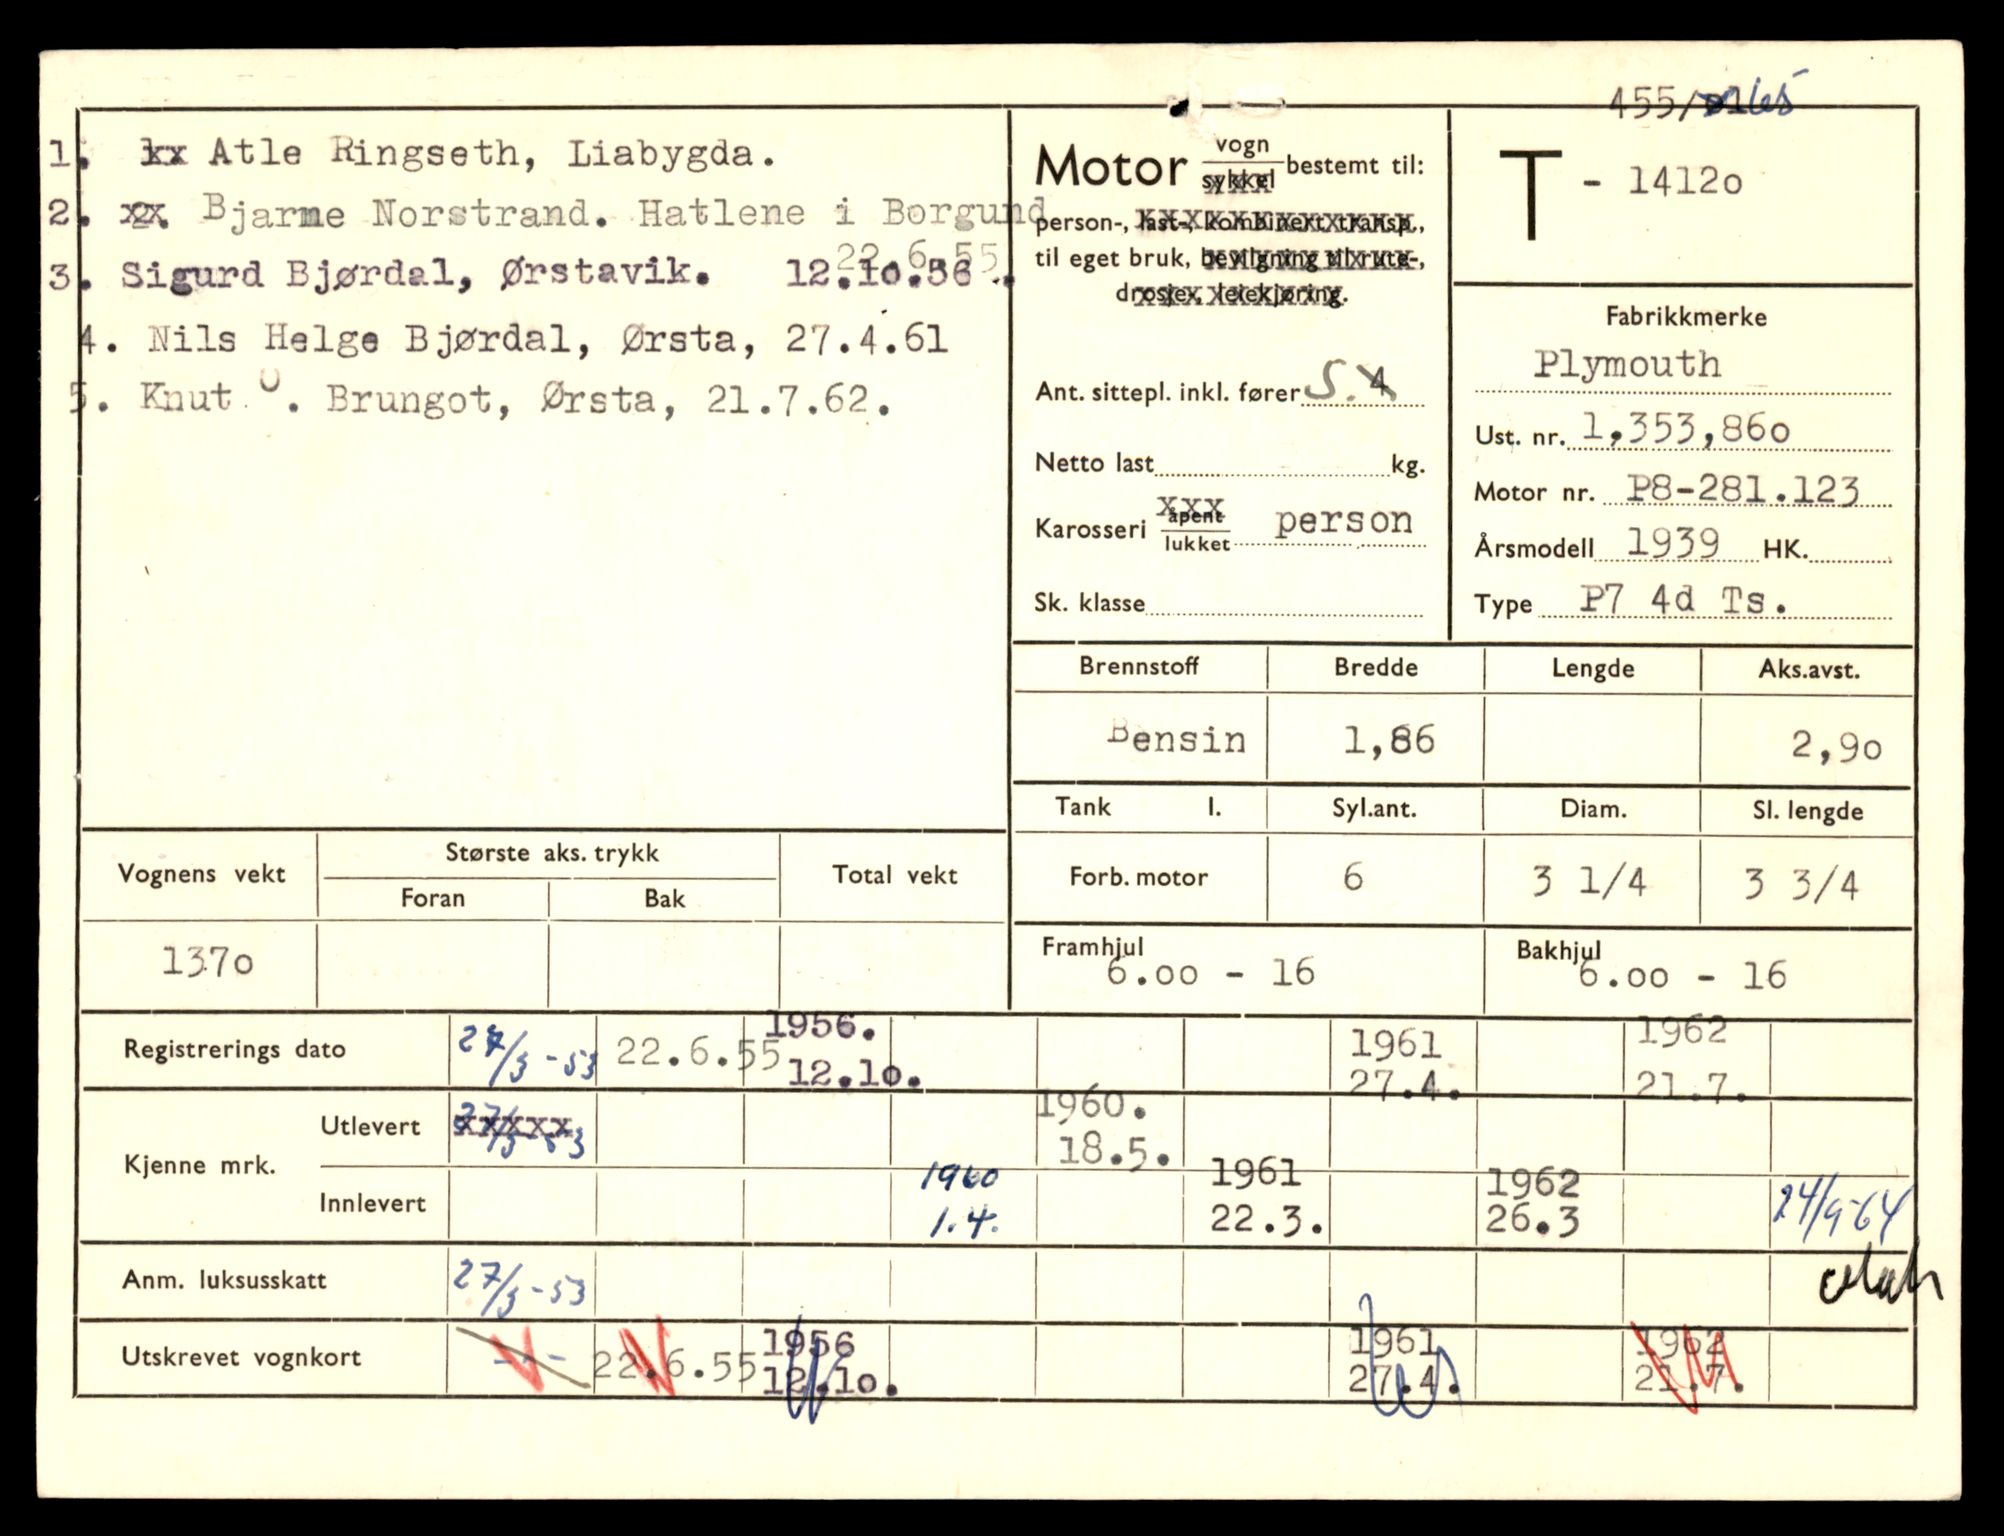 455/
1. Atle Ringseth, Liabygda.
2. Bjarne Norstrand. Hatlene i Borgund
22.6.55.
3. Sigurd Bjørdal, Ørstavik. 12.10.56
4. Nils Helge Bjørdal, Ørsta, 27.4.61
5. Knut O. Brungot, Ørsta, 21.7.62.
Motor vogn sykkel bestemt til:
person-, last-, kombinert transp.,
til eget bruk, bevilgning til rute-,
drosje, leiekjøring.
Ant. sittepl. inkl. fører 5. 4
Netto last kg.
Karosseri åpent lukket person
Sk. klasse
T - 1412o
Fabrikkmerke
Plymouth
Ust. nr. 1,353,86o
Motor nr. P8-281.123
Årsmodell 1939 HK.
Type P7 4d Ts.
Brennstoff Bredde Lengde Aks.avst.
Bensin 1,86 2,9o
Tank l. Syl.ant. Diam. Sl. lengde
Forb. motor 6 3 1/4 3 3/4
Framhjul Bakhjul
6.oo - 16 6.oo - 16
Vognens vekt Største aks. trykk Total vekt
Foran Bak
137o
Registrerings dato 27/3-53 22.6.55 1956. 12.1o. 1961 27.4. 1962 21.7.
Kjenne mrk. Utlevert 27/3-53 1960. 18.5.
Innlevert 1960 1.4. 1961 22.3. 1962 26.3 24/9-64
Anm. luksusskatt 27/3-53
Utskrevet vognkort 22.6.55 1956 12.1o. 1961 27.4. 1962 21.7.